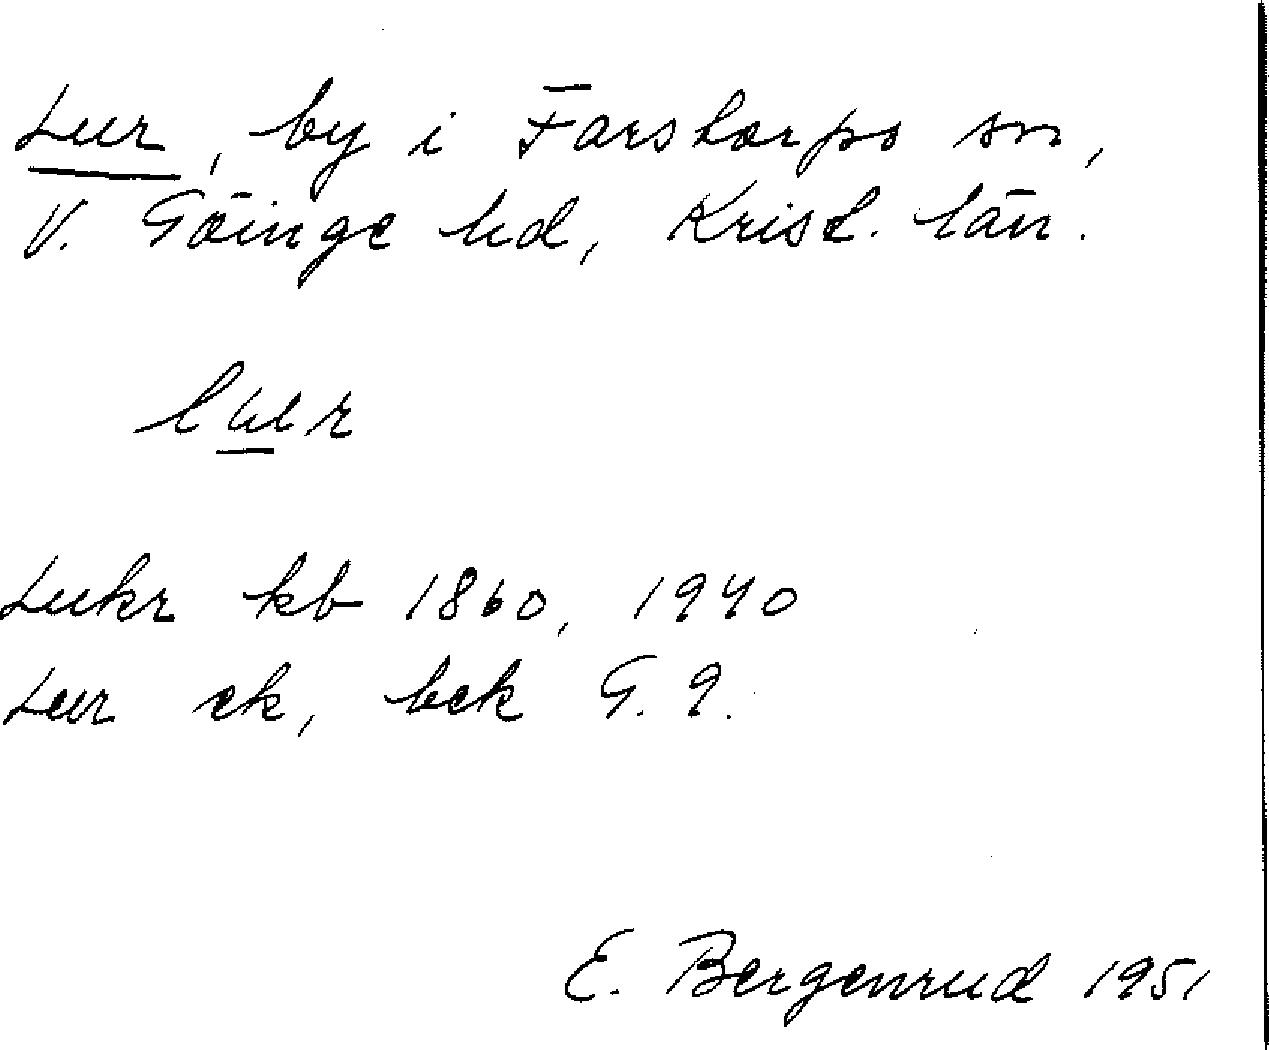 Lur, by i Farstorps sn,
V. Göinge hd, Krist. län.
lωər
Luhr kb 1860, 1940
Lur ek, bek G. 9.
E. Bergenrud 1951